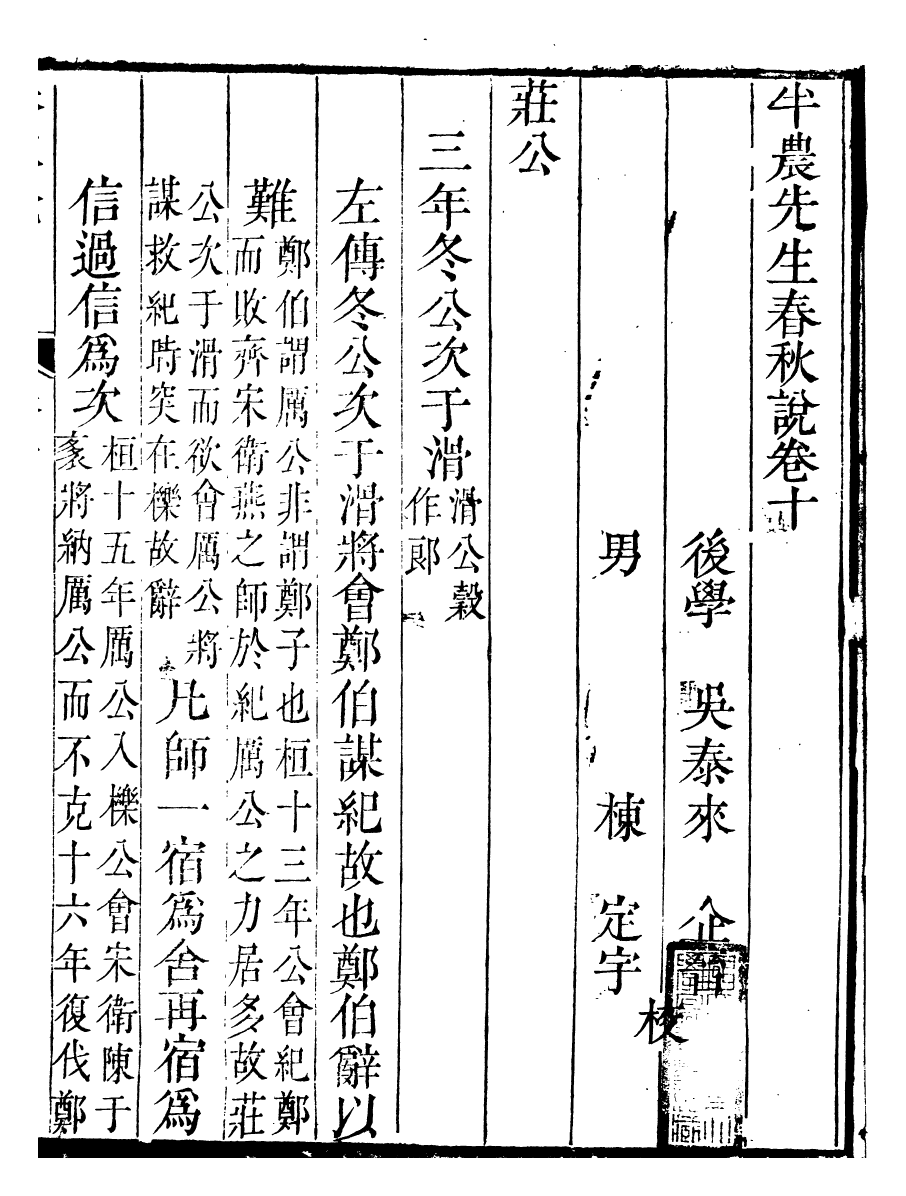 半農先生春秋說卷十
後學　吳泰來　企晉
男　棟　定宇　校
莊公
三年冬公次于滑滑公穀作郎
左傳冬公次于滑將會鄭伯謀紀故也鄭伯辭以
難鄭伯謂厲公非謂鄭子也桓十三年公會紀鄭而敗齊宋衛燕之師於紀厲公之力居多故莊
公次于滑而欲會厲公將謀救紀時突在櫟故辭凡師一宿爲舍再宿爲
信過信爲次桓十五年厲公入櫟公會宋衛陳于袲將納厲公而不克十六年復伐鄭